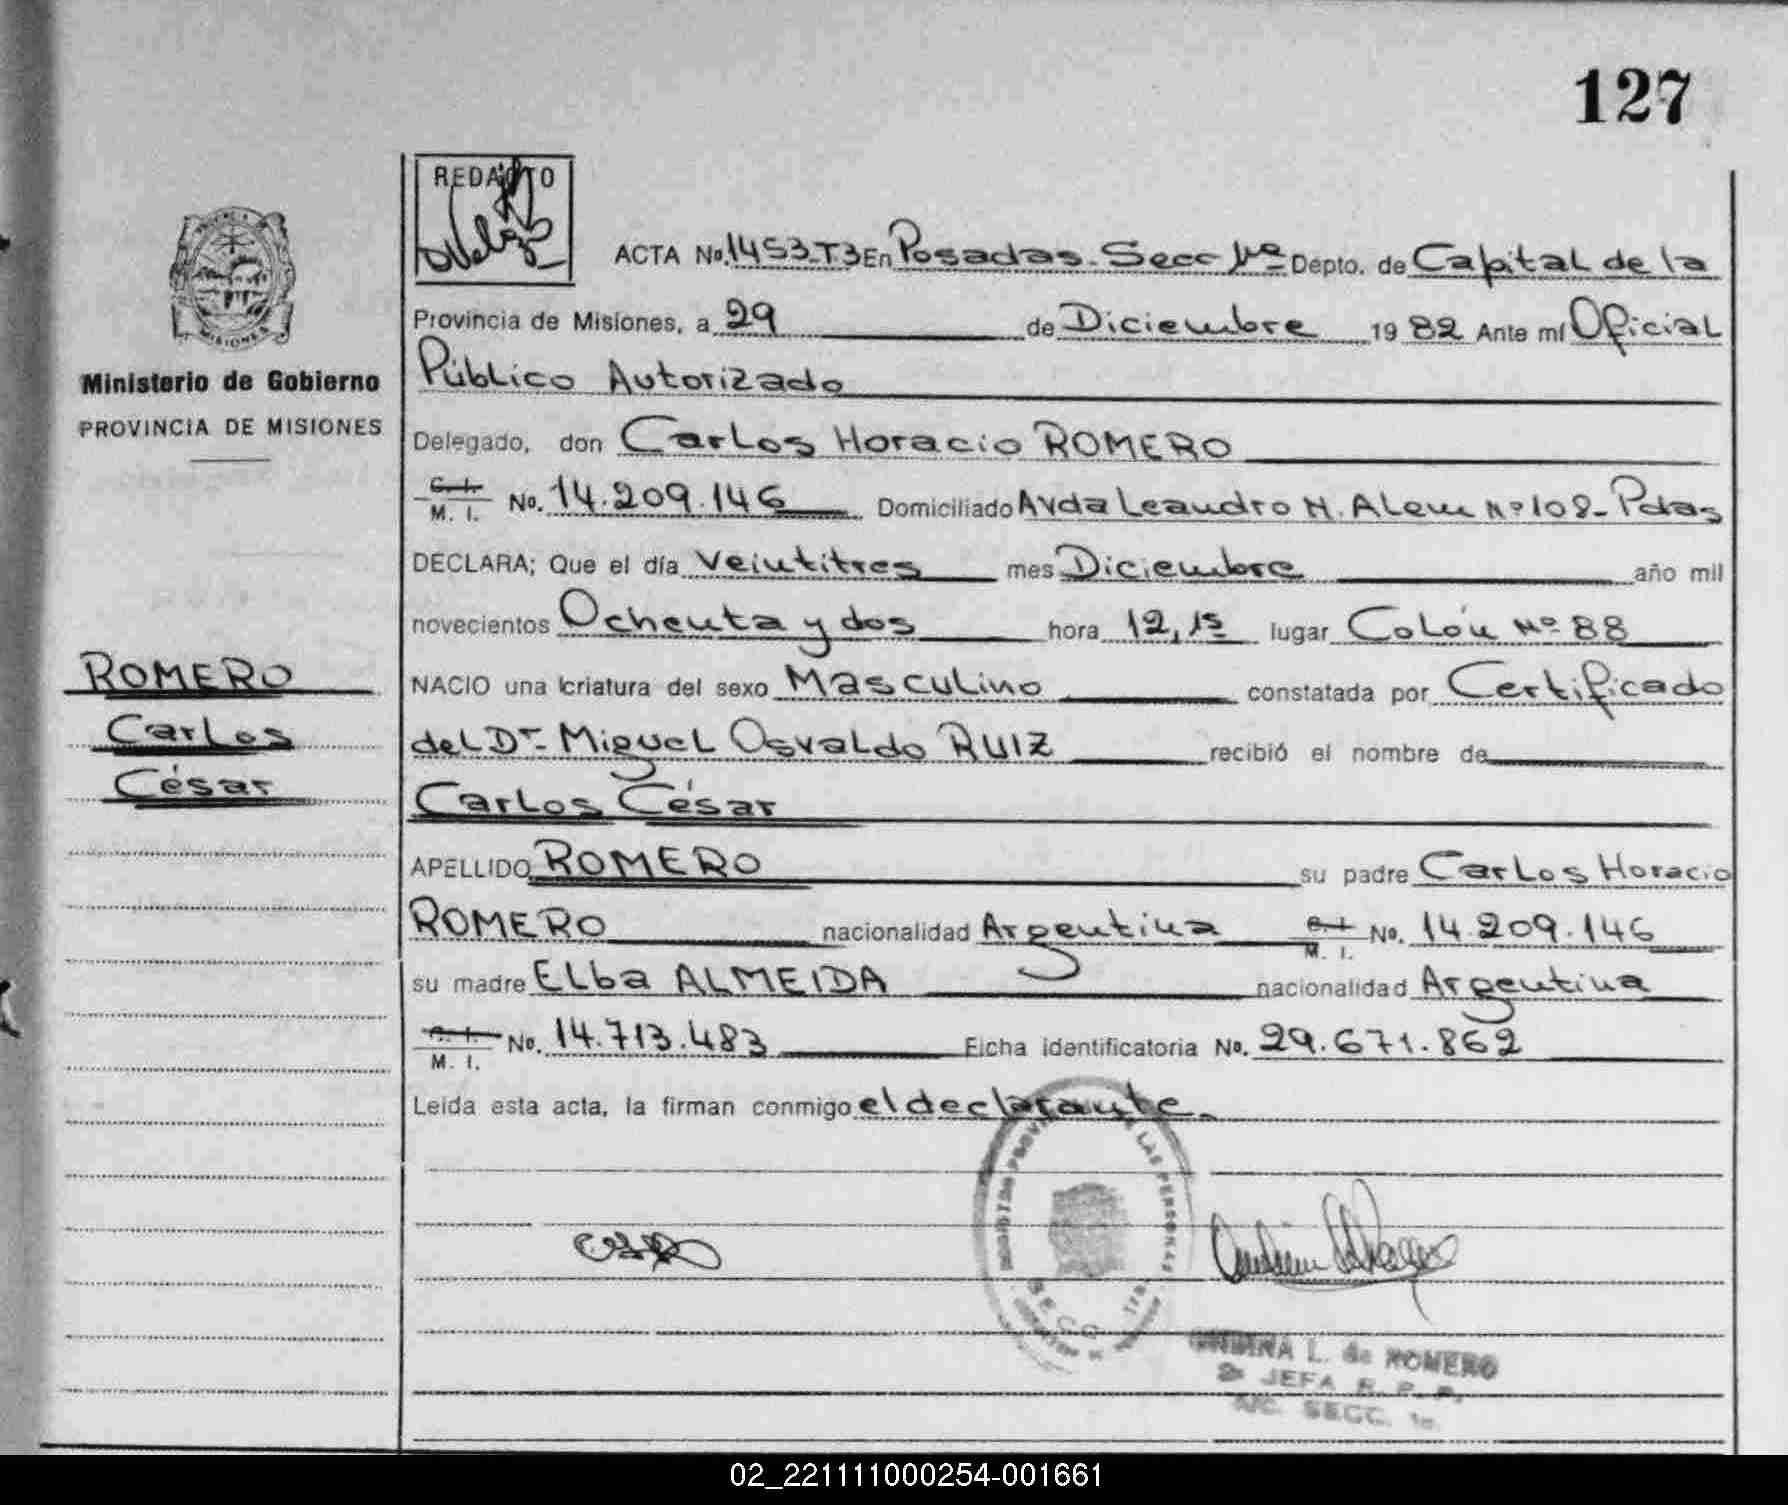 127
REDACTO
ACTA No. 1453-T3 En Posadas. Secc 1ª Depto. de Capital de la
Provincia de Misiones, a 29 de Diciembre 1982 Ante mí Oficial
Público Autorizado
Delegado, don Carlos Horacio ROMERO
C. I. M. I. No. 14.209.146 Domiciliado Avda Leandro N. Alem Nº 108- Pdas
DECLARA; Que el día veintitres mes Diciembre año mil
novecientos Ochenta y dos hora 12,15 lugar Colón Nº 88
NACIO una criatura del sexo Masculino constatada por Certificado
del Dr. Miguel Osvaldo RUIZ recibió el nombre de
Carlos César
APELLIDO ROMERO su padre Carlos Horacio
ROMERO nacionalidad Argentina C. I. M. I. No. 14.209.146
su madre Elba ALMEIDA nacionalidad Argentina
C. I. M. I. No. 14.713.483 Ficha identificatoria No. 29.671.862
Leída esta acta, la firman conmigo el declarante.
MISIONES
Ministerio de Gobierno
PROVINCIA DE MISIONES
ROMERO
Carlos
César
LAS PERSONAS
SECC
L. de ROMERO
JEFA R. P. P.
A/C. SECC. 1a.
02_221111000254-001661